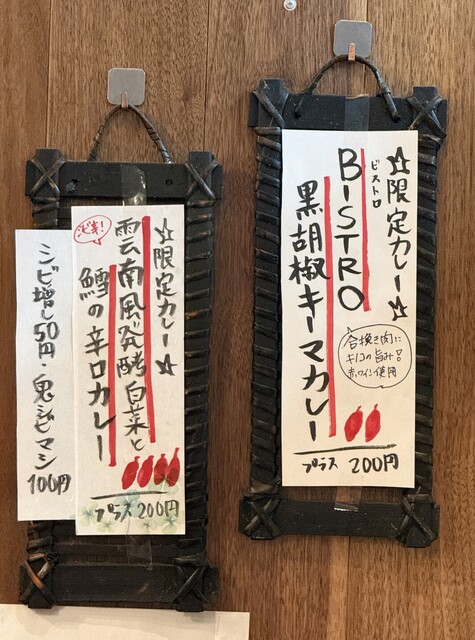 ☆限定カレー☆
BISTRO
ビストロ
黒胡椒キーマカレー
合挽き肉に
キノコの旨み!!
赤ワイン使用
プラス 200円
☆限定カレー☆
雲南風発酵白菜と
鱈の辛口カレー
シビ辛!
プラス 200円
シビ増し50円・鬼シビマシ
100円